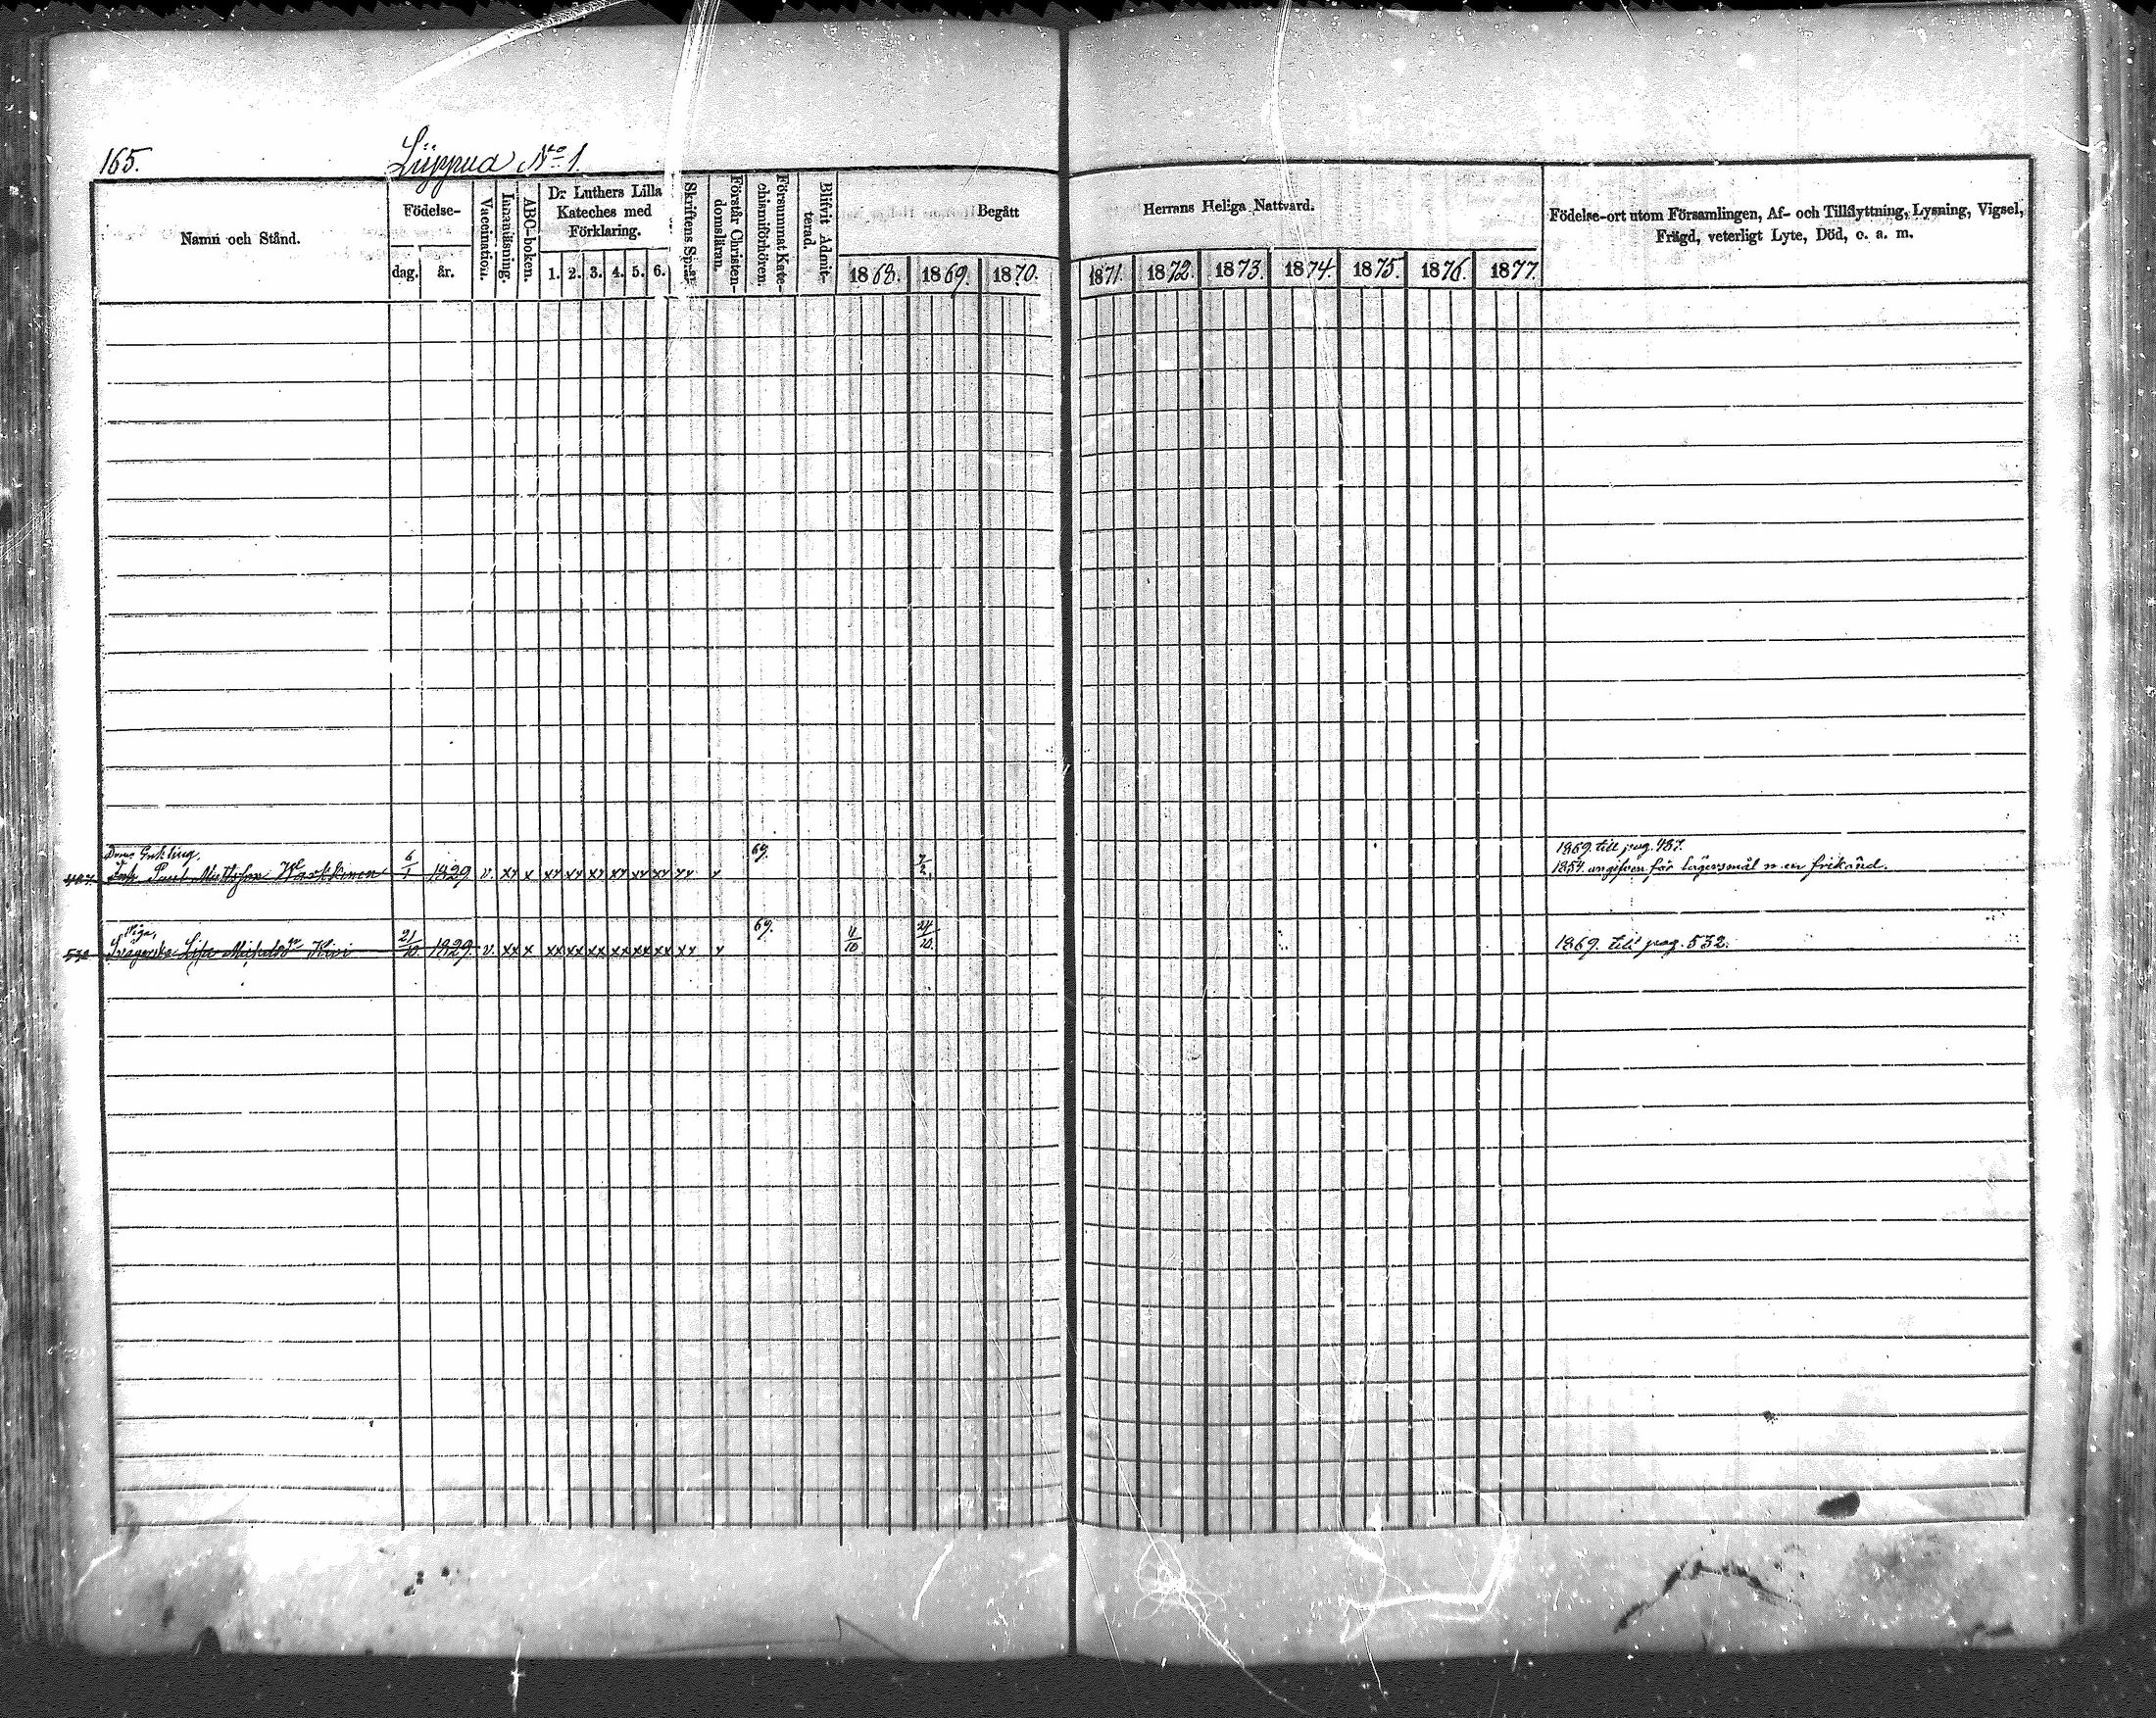 165. Lüppua No 1.
Namn och Stånd.
Födelse-
dag. år.
Vaccination.
Innanläsning.
ABC-boken.
Dr Luthers Lilla
Kateches med
Förklaring.
1. 2. 3. 4. 5. 6.
Skriftens Språk
Förstår Christen-
domsläran.
Försummat Kate-
chismiförhören.
Blifvit Admit-
terad.
Begått
Herrans Heliga Nattvard.
1868. 1869. 1870. 1871. 1872. 1873. 1874. 1875. 1876. 1877.
Födelse-ort utom Församlingen, Af- och Tillflyttning, Lysning, Vigsel,
Frägd, veterligt Lyte, Död, o. a. m.
69. 1869. till pag. 487.
Paul 6/1 1829 v. xx x xx xx xx xx xx xx xx 7/2 1854. angifven för lägersmål m. en frikänd.
Piga,
532 Lisa Michelsdr Kivi 21/10 1829. v. xx x xx xx xx xx xx xx xx 69. 11/10 24/10 1869. till pag. 532.